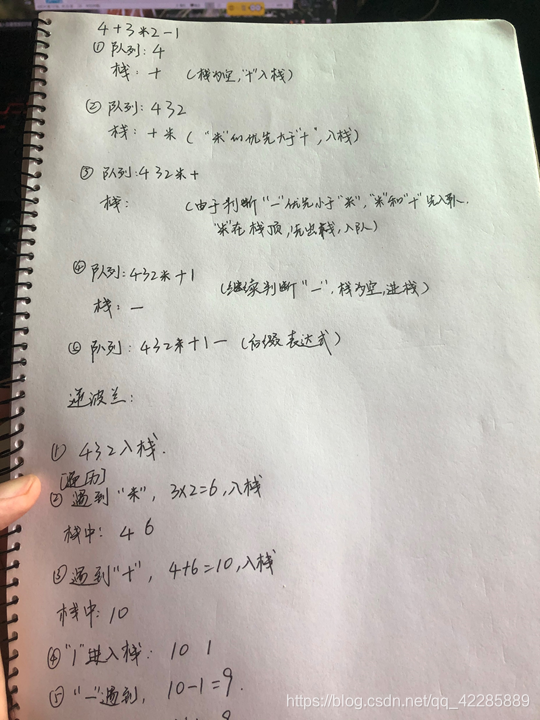 4+3*2-1
① 队列: 4
栈: + (栈为空,"+"入栈)
② 队列: 432
栈: + * ( "*"的优先大于"+",入栈)
③ 队列:432*+
栈: (由于判断"-"优先小于"*","*"和"+"先入队.
"*"在栈顶,先出栈,入队)
④ 队列:432*+1
栈: - (继续判断"-",栈为空,进栈)
⑤ 队列:432*+1- (后缀表达式)
逆波兰:
① 432入栈.
[遍历]
② 遇到"*", 3×2=6,入栈
栈中: 4 6
③ 遇到"+", 4+6=10,入栈
栈中: 10
④ "1"进入栈: 10 1
⑤ "-"遇到, 10-1=9.
https://blog.csdn.net/qq_42285889